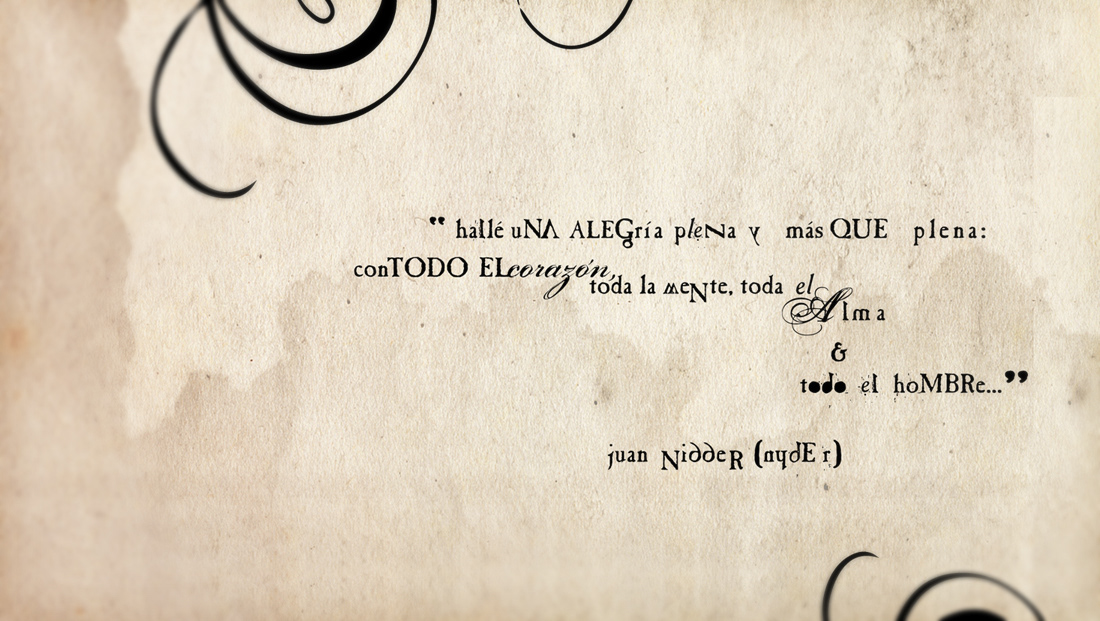 “ hallé uNA ALEGría pleNa y más QUE plena:
conTODO EL corazón,
toda la meNte, toda el
Alma
&
todo el hoMBRe...”
juan NiddeR (nydEr)